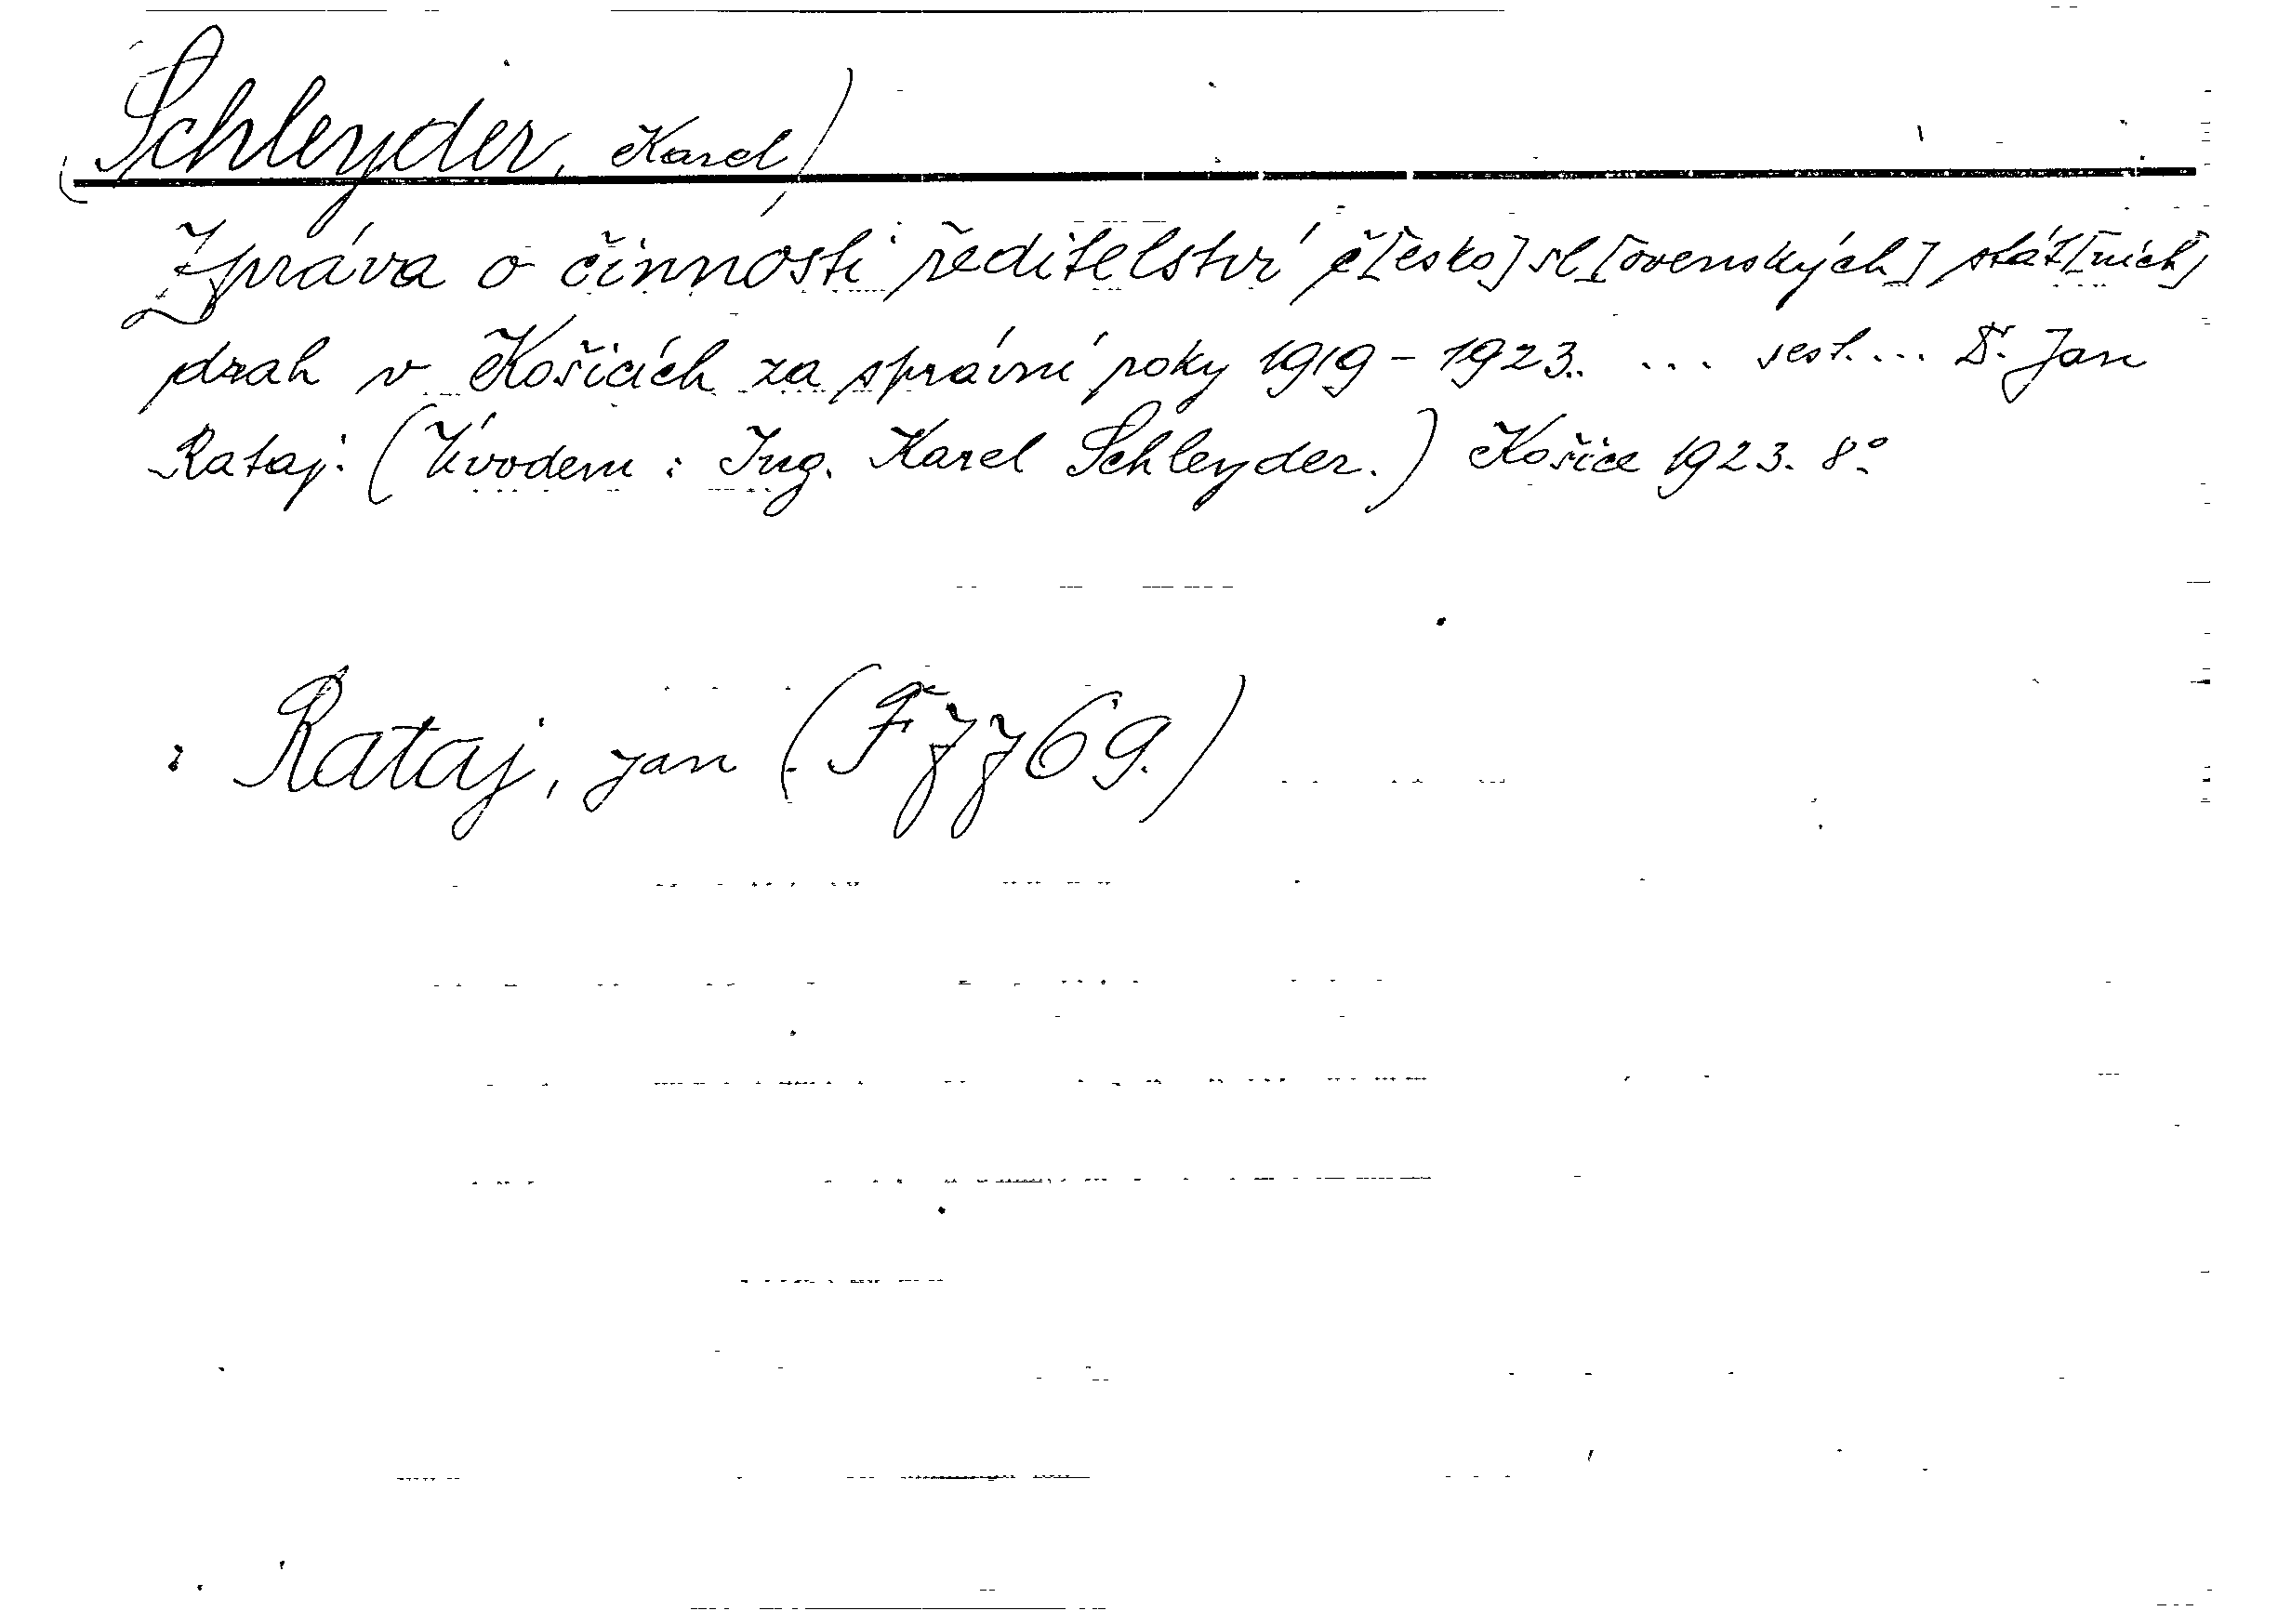 (Schleyder, Karel)
Zpráva o činnosti ředitelství č[esko]sl[ovenských] stát[ních]
drah v Košicích za správní roky 1919-1923. ... sest. ... Dr. Jan
Rataj. (Úvodem: Ing. Karel Schleyder.) Košice 1923. 8°.
: Rataj, Jan (F 7769.)